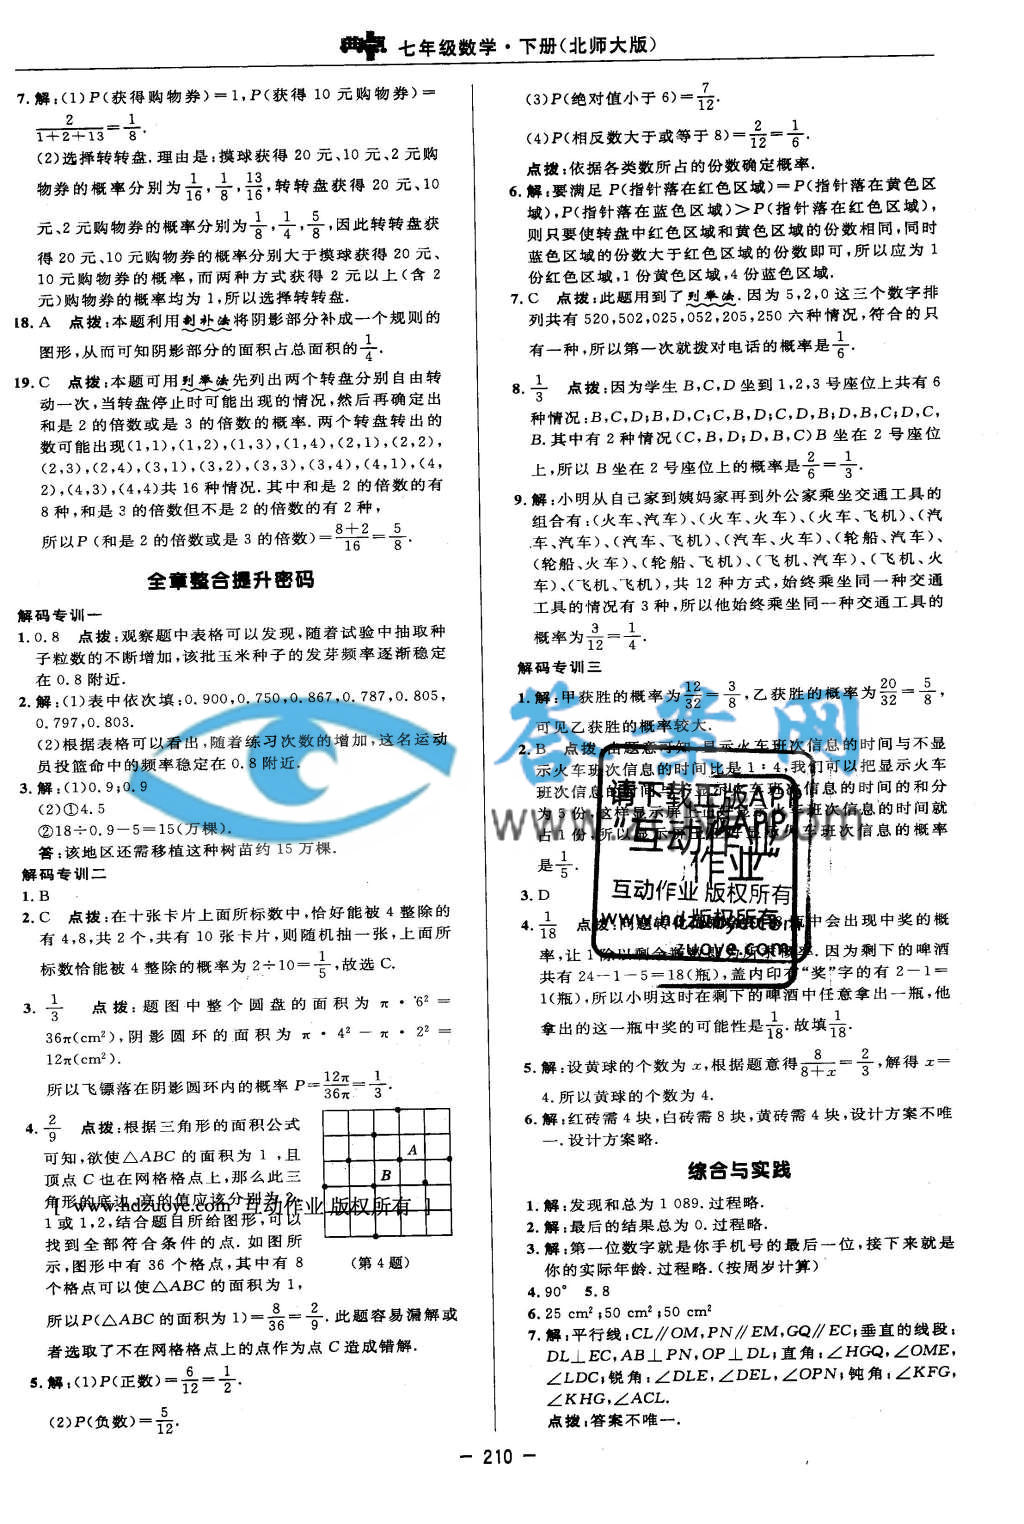 典点 七年级数学·下册(北师大版)
7.解:(1)P(获得购物券)=1,P(获得 10 元购物券)=
2/(1+2+13)=1/8.
(2)选择转转盘.理由是:摸球获得 20 元、10 元、2 元购
物券的概率分别为1/16,1/8,13/16,转转盘获得 20 元、10
元、2 元购物券的概率分别为1/8,1/4,5/8,因此转转盘获
得 20 元、10 元购物券的概率分别大于摸球获得 20 元、
10 元购物券的概率,而两种方式获得 2 元以上(含 2
元)购物券的概率均为 1,所以选择转转盘.
18.A 点拨:本题利用割补法将阴影部分补成一个规则的
图形,从而可知阴影部分的面积占总面积的1/4.
19.C 点拨:本题可用列举法先列出两个转盘分别自由转
动一次,当转盘停止时可能出现的情况,然后再确定出
和是 2 的倍数或是 3 的倍数的概率.两个转盘转出的
数可能出现(1,1),(1,2),(1,3),(1,4),(2,1),(2,2),
(2,3),(2,4),(3,1),(3,2),(3,3),(3,4),(4,1),(4,
2),(4,3),(4,4)共 16 种情况.其中和是 2 的倍数的有
8 种,和是 3 的倍数但不是 2 的倍数的有 2 种,
所以P(和是 2 的倍数或是 3 的倍数)=(8+2)/16=5/8.
全章整合提升密码
解码专训一
1.0.8 点拨:观察题中表格可以发现,随着试验中抽取种
子粒数的不断增加,该批玉米种子的发芽频率逐渐稳定
在 0.8 附近.
2.解:(1)表中依次填:0.900,0.750,0.867,0.787,0.805,
0.797,0.803.
(2)根据表格可以看出,随着练习次数的增加,这名运动
员投篮命中的频率稳定在 0.8 附近.
3.解:(1)0.9;0.9
(2)①4.5
②18÷0.9-5=15(万棵).
答:该地区还需移植这种树苗约 15 万棵.
解码专训二
1.B
2.C 点拨:在十张卡片上面所标数中,恰好能被 4 整除的
有 4,8,共 2 个,共有 10 张卡片,则随机抽一张,上面所
标数恰能被 4 整除的概率为 2÷10=1/5,故选 C.
3.1/3 点拨:题图中整个圆盘的面积为 π·6²=
36π(cm²),阴影圆环的面积为 π·4²-π·2²=
12π(cm²).
所以飞镖落在阴影圆环内的概率 P=12π/36π=1/3.
4.2/9 点拨:根据三角形的面积公式
可知,欲使△ABC 的面积为 1,且
顶点 C 也在网格格点上,那么此三
角形的底边、高的值应该分别为 2,
1 或 1,2,结合题目所给图形,可以
找到全部符合条件的点.如图所
示,图形中有 36 个格点,其中有 8
个格点可以使△ABC 的面积为 1,
A
B
(第 4 题)
[ www.hdzuoye.com 互动作业 版权所有 ]
所以P(△ABC 的面积为 1)=8/36=2/9.此题容易漏解或
者选取了不在网格格点上的点作为点 C 造成错解.
5.解:(1)P(正数)=6/12=1/2.
(2)P(负数)=5/12.
(3)P(绝对值小于 6)=7/12.
(4)P(相反数大于或等于 8)=2/12=1/6.
点拨:依据各类数所占的份数确定概率.
6.解:要满足 P(指针落在红色区域)=P(指针落在黄色区
域),P(指针落在蓝色区域)>P(指针落在红色区域),
则只要使转盘中红色区域和黄色区域的份数相同,同时
蓝色区域的份数大于红色区域的份数即可,所以应为 1
份红色区域,1 份黄色区域,4 份蓝色区域.
7.C 点拨:此题用到了列举法.因为 5,2,0 这三个数字排
列共有 520,502,025,052,205,250 六种情况,符合的只
有一种,所以第一次就拨对电话的概率是1/6.
8.1/3 点拨:因为学生 B,C,D 坐到 1,2,3 号座位上共有 6
种情况:B,C,D;B,D,C;C,B,D;C,D,B;D,B,C;D,C,
B.其中有 2 种情况(C,B,D;D,B,C)B 坐在 2 号座位
上,所以 B 坐在 2 号座位上的概率是2/6=1/3.
9.解:小明从自己家到姨妈家再到外公家乘坐交通工具的
组合有:(火车、汽车)、(火车、火车)、(火车、飞机)、(汽
车、汽车)、(汽车、飞机)、(汽车、火车)、(轮船、汽车)、
(轮船、火车)、(轮船、飞机)、(飞机、汽车)、(飞机、火
车)、(飞机、飞机),共 12 种方式,始终乘坐同一种交通
工具的情况有 3 种,所以他始终乘坐同一种交通工具的
概率为3/12=1/4.
解码专训三
1.解:甲获胜的概率为12/32=3/8,乙获胜的概率为20/32=5/8,
可见乙获胜的概率较大.
2.B 点拨:由题意可知,显示火车班次信息的时间与不显
示火车班次信息的时间比是 1:4,我们可以把显示火车
班次信息的时间与 班次信息的时间的和分
为 5 份,这样显示屏上 班次信息的时间就
占 1 份,所以显示屏上 火车班次信息的概率
是1/5.
3.D
4.1/18 点拨:问题转化为 瓶中会出现中奖的概
率,让 1 除以剩余瓶数即为所求概率.因为剩下的啤酒
共有 24-1-5=18(瓶),盖内印有“奖”字的有 2-1=
1(瓶),所以小明这时在剩下的啤酒中任意拿出一瓶,他
拿出的这一瓶中奖的可能性是1/18.故填1/18.
5.解:设黄球的个数为 x,根据题意得8/(8+x)=2/3,解得 x=
4.所以黄球的个数为 4.
6.解:红砖需 4 块,白砖需 8 块,黄砖需 4 块,设计方案不唯
一.设计方案略.
综合与实践
1.解:发现和总为 1 089.过程略.
2.解:最后的结果总为 0.过程略.
3.解:第一位数字就是你手机号的最后一位,接下来就是
你的实际年龄.过程略.(按周岁计算)
4.90° 5.8
6.25 cm²;50 cm²;50 cm²
7.解:平行线:CL∥OM,PN∥EM,GQ∥EC;垂直的线段:
DL⊥EC,AB⊥PN,OP⊥DL;直角:∠HGQ,∠OME,
∠LDC;锐角:∠DLE,∠DEL,∠OPN;钝角:∠KFG,
∠KHG,∠ACL.
点拨:答案不唯一.
答案网
请下载正版APP
“互动作业”
互动作业 版权所有
zuoye.com
- 210 -